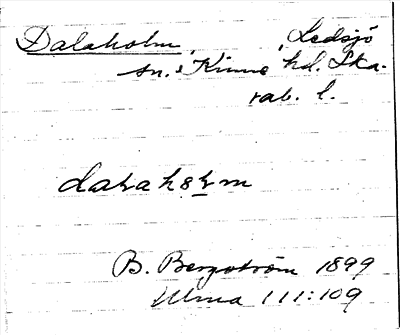 Dalaholm, Ledsjö
sn. Kinne hd. Ska-
rab. l.
B. Bergström 1899
Ulma 111:109